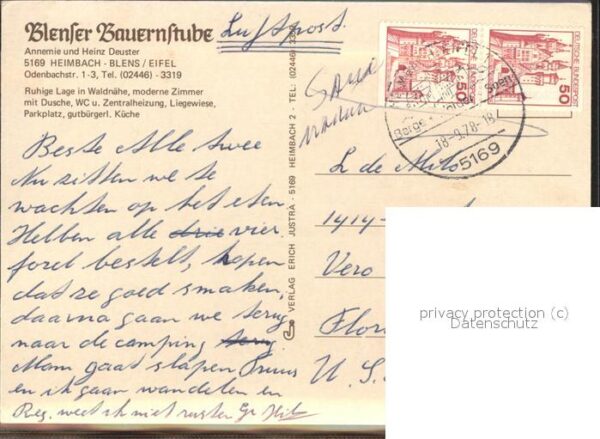 Blenser Bauernstube
Annemie und Heinz Deuster
5169 HEIMBACH - BLENS / EIFEL
Odenbachstr. 1-3, Tel. (02446) - 3319
Ruhige Lage in Waldnähe, moderne Zimmer
mit Dusche, WC u. Zentralheizung, Liegewiese,
Parkplatz, gutbürgerl. Küche
Luftpost.
Beste Alle twee
Nu zitten we te
wachten op het eten
Hebben alle drie vier
forel bestelt, hopen
dat ze goed smaken,
daarna gaan we terug
naar de camping terug
Mam gaat slapen
en ik gaan wandelen en
Reg. weet ik niet rusten Gr
VERLAG ERICH JUSTRA · 5169 HEIMBACH 2 · TEL: (02446)
DEUTSCHE BUNDESPOST
50
DEUTSCHE BUNDESPOST
50
18-9.78-18
5169
L de Milo
1414-
Vero
Flori
U. S.
privacy protection (c)
Datenschutz